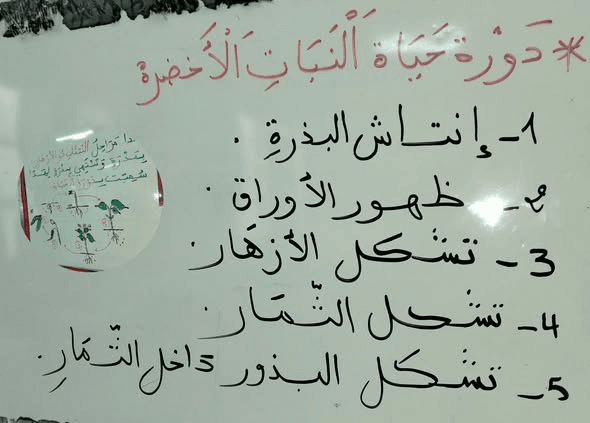 * دَوْرة حَيَاة اَلْنَبَاتِ اَلْأَخضرة
1- إنتاش البذرةِ .
2- ظهور الأوراق .
3- تشكل الأزهَار.
4- تشكل الثّمَار.
5- تشكل البذور داخل الثّمَارِ.